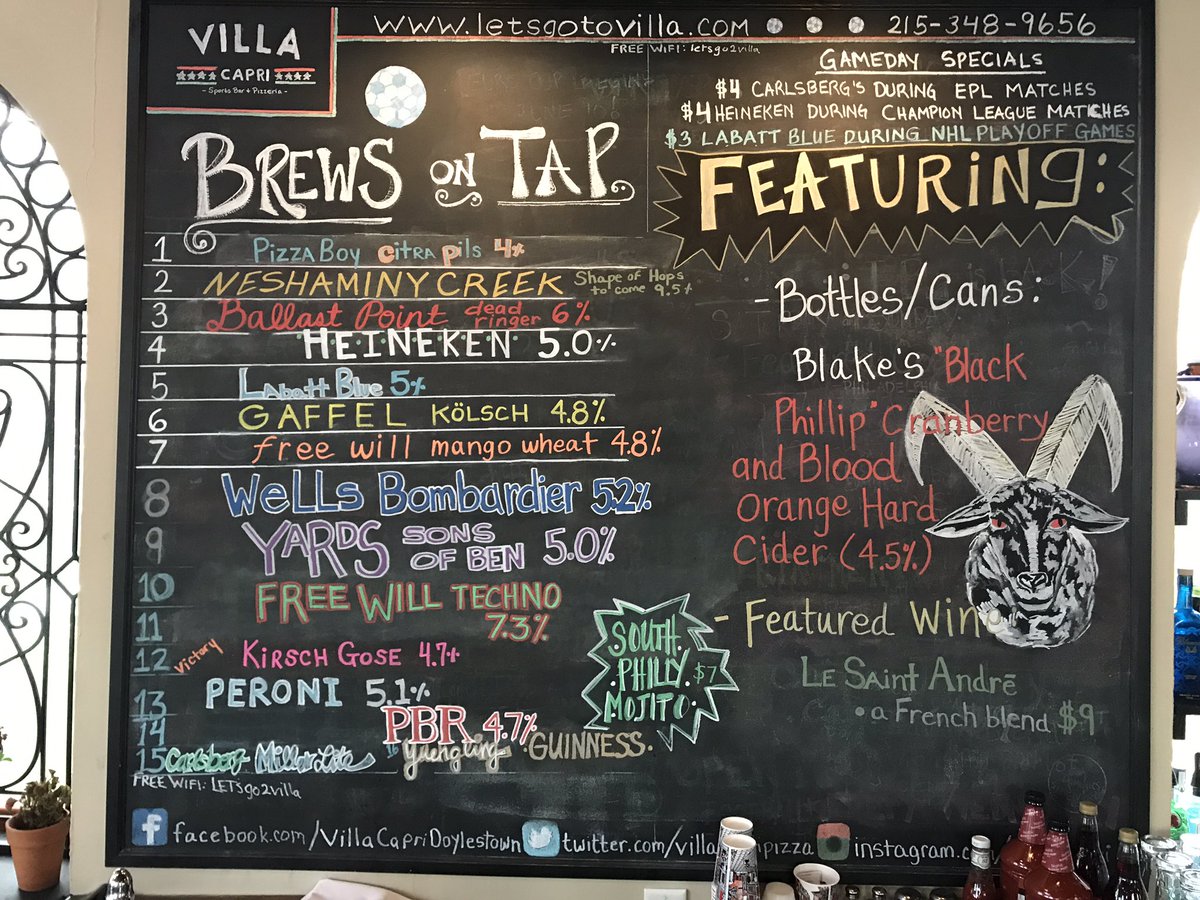 VILLA
CAPRI
- Sports Bar & Pizzeria -
www.letsgotovilla.com
215-348-9656
FREE WiFi: letsgo2villa
GAMEDAY SPECIALS
$4 CARLSBERG'S DURING EPL MATCHES
$4 HEINEKEN DURING CHAMPION LEAGUE MATCHES
$3 LABATT BLUE DURING NHL PLAYOFF GAMES
BREWS ON TAP
1 PIZZA BOY citra pils 4%
2 NESHAMINY CREEK Shape of Hops to come 9.5%
3 Ballast Point dead ringer 6%
4 HEINEKEN 5.0%
5 Labatt Blue 5%
6 GAFFEL KÖLSCH 4.8%
7 free will mango wheat 4.8%
8 Wells Bombardier 5.2%
9 YARDS SONS OF BEN 5.0%
10 FREE WILL TECHNO
11 7.3%
12 Victory KIRSCH GOSE 4.7%
13 PERONI 5.1%
14 PBR 4.7%
15 Carlsberg Miller Lite 16 Yuengling · GUINNESS ·
FREE WIFI: LETsgo2villa
SOUTH
PHILLY $7
MOJITO
FEATURING:
- Bottles/Cans:
Blake's "Black
Phillip" Cranberry
and Blood
Orange Hard
Cider (4.5%)
- Featured Wine
LE SAINT ANDRÉ
• a French blend $9
facebook.com/VillaCapriDoylestown
twitter.com/villa
pizza
instagram.c